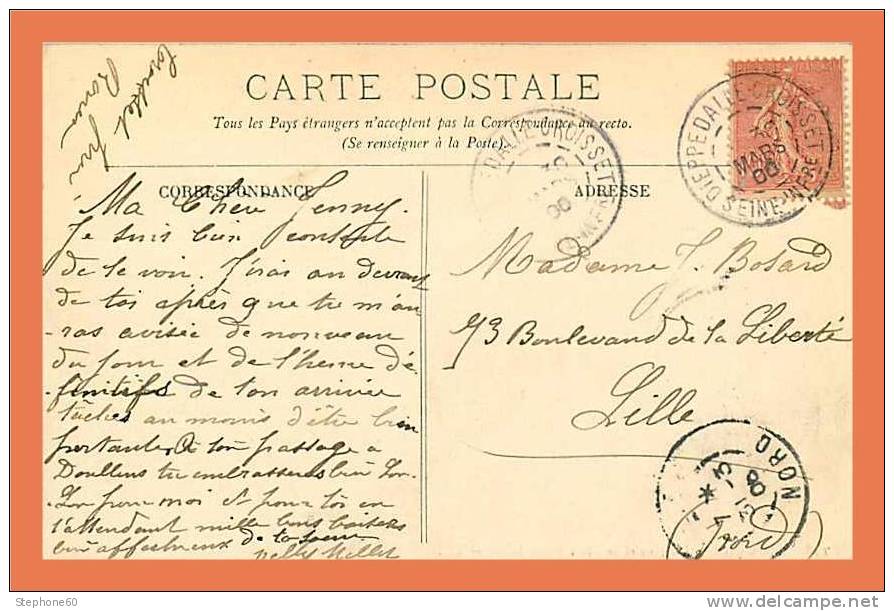 CARTE POSTALE
Tous les Pays étrangers n'acceptent pas la Correspondance au recto.
(Se renseigner à la Poste).
CORRESPONDANCE
ADRESSE
Ma Chère Jenny.
Je suis bien contente
de te voir. J'irai au devant
de toi après que tu m'au-
-ras avisée de nouveau
du jour et de l'heure dé-
-finitifs de ton arrivée
tâches au moins d'être bien
portante. A ton passage à
Doullens tu embrasseras bien
pour moi et pour toi en
t'attendant mille bons baisers
bien affectueux de ta soeur
Nelly
Madame J. Bosard
73 Boulevard de la Liberté
Lille
Nord
DIEPPEDALLE-CROISSET
MARS
06
SEINE-INFRE
DALLE-CROISSET
MARS
06
NORD
Stephone60